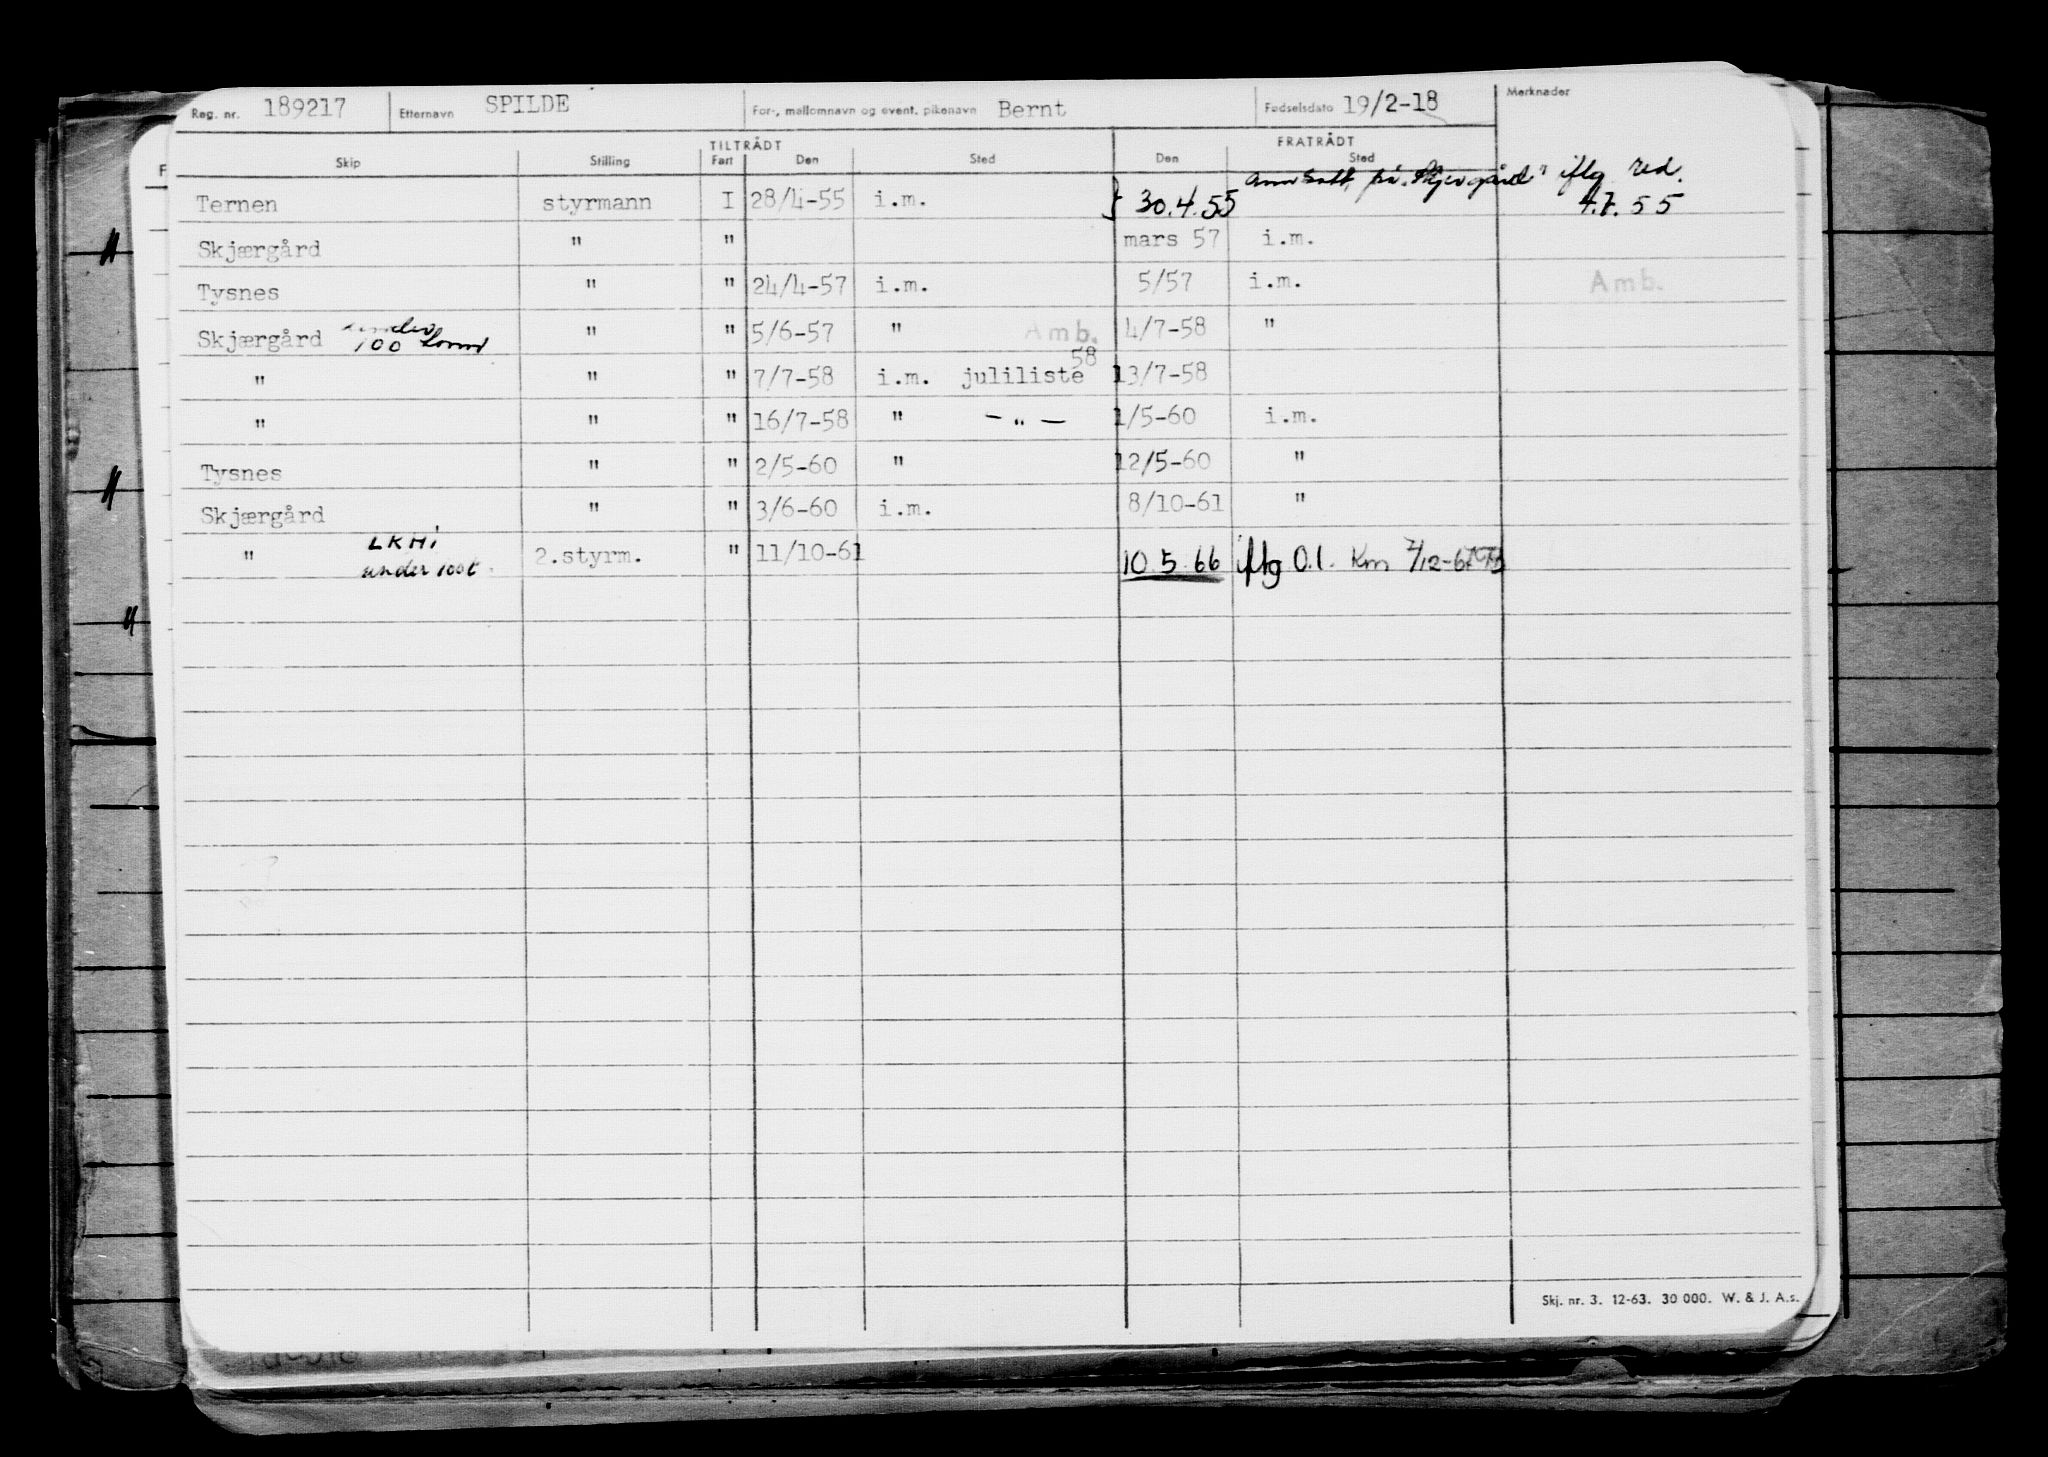 Reg. nr. 189217 Etternavn SPILDE For-, mellomnavn og event. pikenavn Bernt Fødselsdato 19/2-18 Merknader
TILTRÅDT FRATRÅDT
Skip Stilling Fart Den Sted Den Sted
på "Skjærgård" iflg red.
Ternen styrmann I 28/4-55 i.m. } 30.4.55 4.7.55
Skjærgård " " mars 57 i.m.
Tysnes " " 24/4-57 i.m. 5/57 i.m. Amb.
Skjærgård under 100 tonn " " 5/6-57 " Amb. 4/7-58 "
" " " 7/7-58 i.m. juliliste 58 13/7-58
" " " 16/7-58 " - " - 1/5-60 i.m.
Tysnes " " 2/5-60 " 12/5-60 "
Skjærgård " " 3/6-60 i.m. 8/10-61 "
" LKHI under 100t. 2.styrm. " 11/10-61 10.5.66 iflg O.l. Km
Skj. nr. 3. 12-63. 30 000. W. & J. A.s.